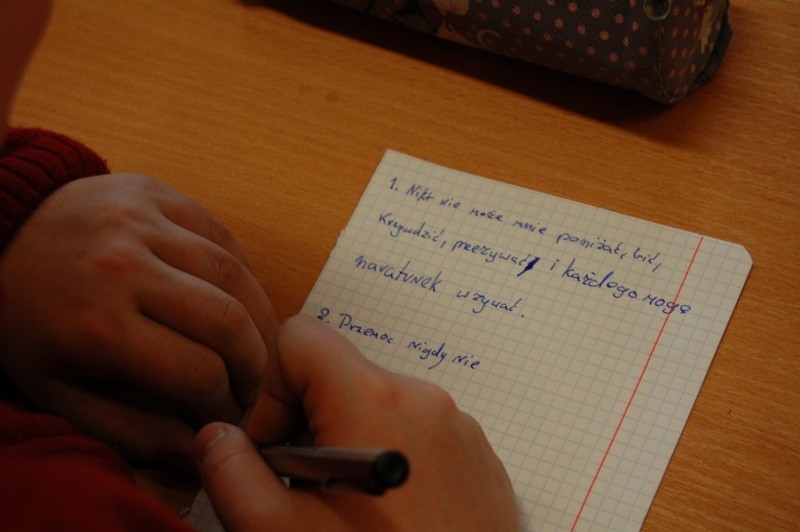 1. Nikt nie może mnie poniżać, bić,
Krzywdzić, przezywać i każdego mogę
naratunek wzywać.
2. Przemoc nigdy nie